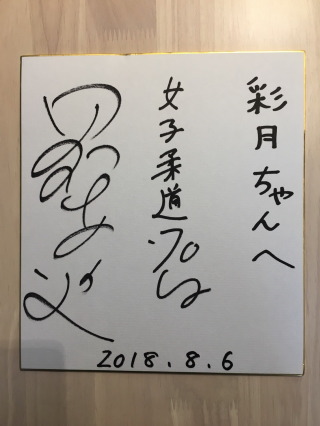 彩月ちゃんへ
女子柔道70kg
2018.8.6